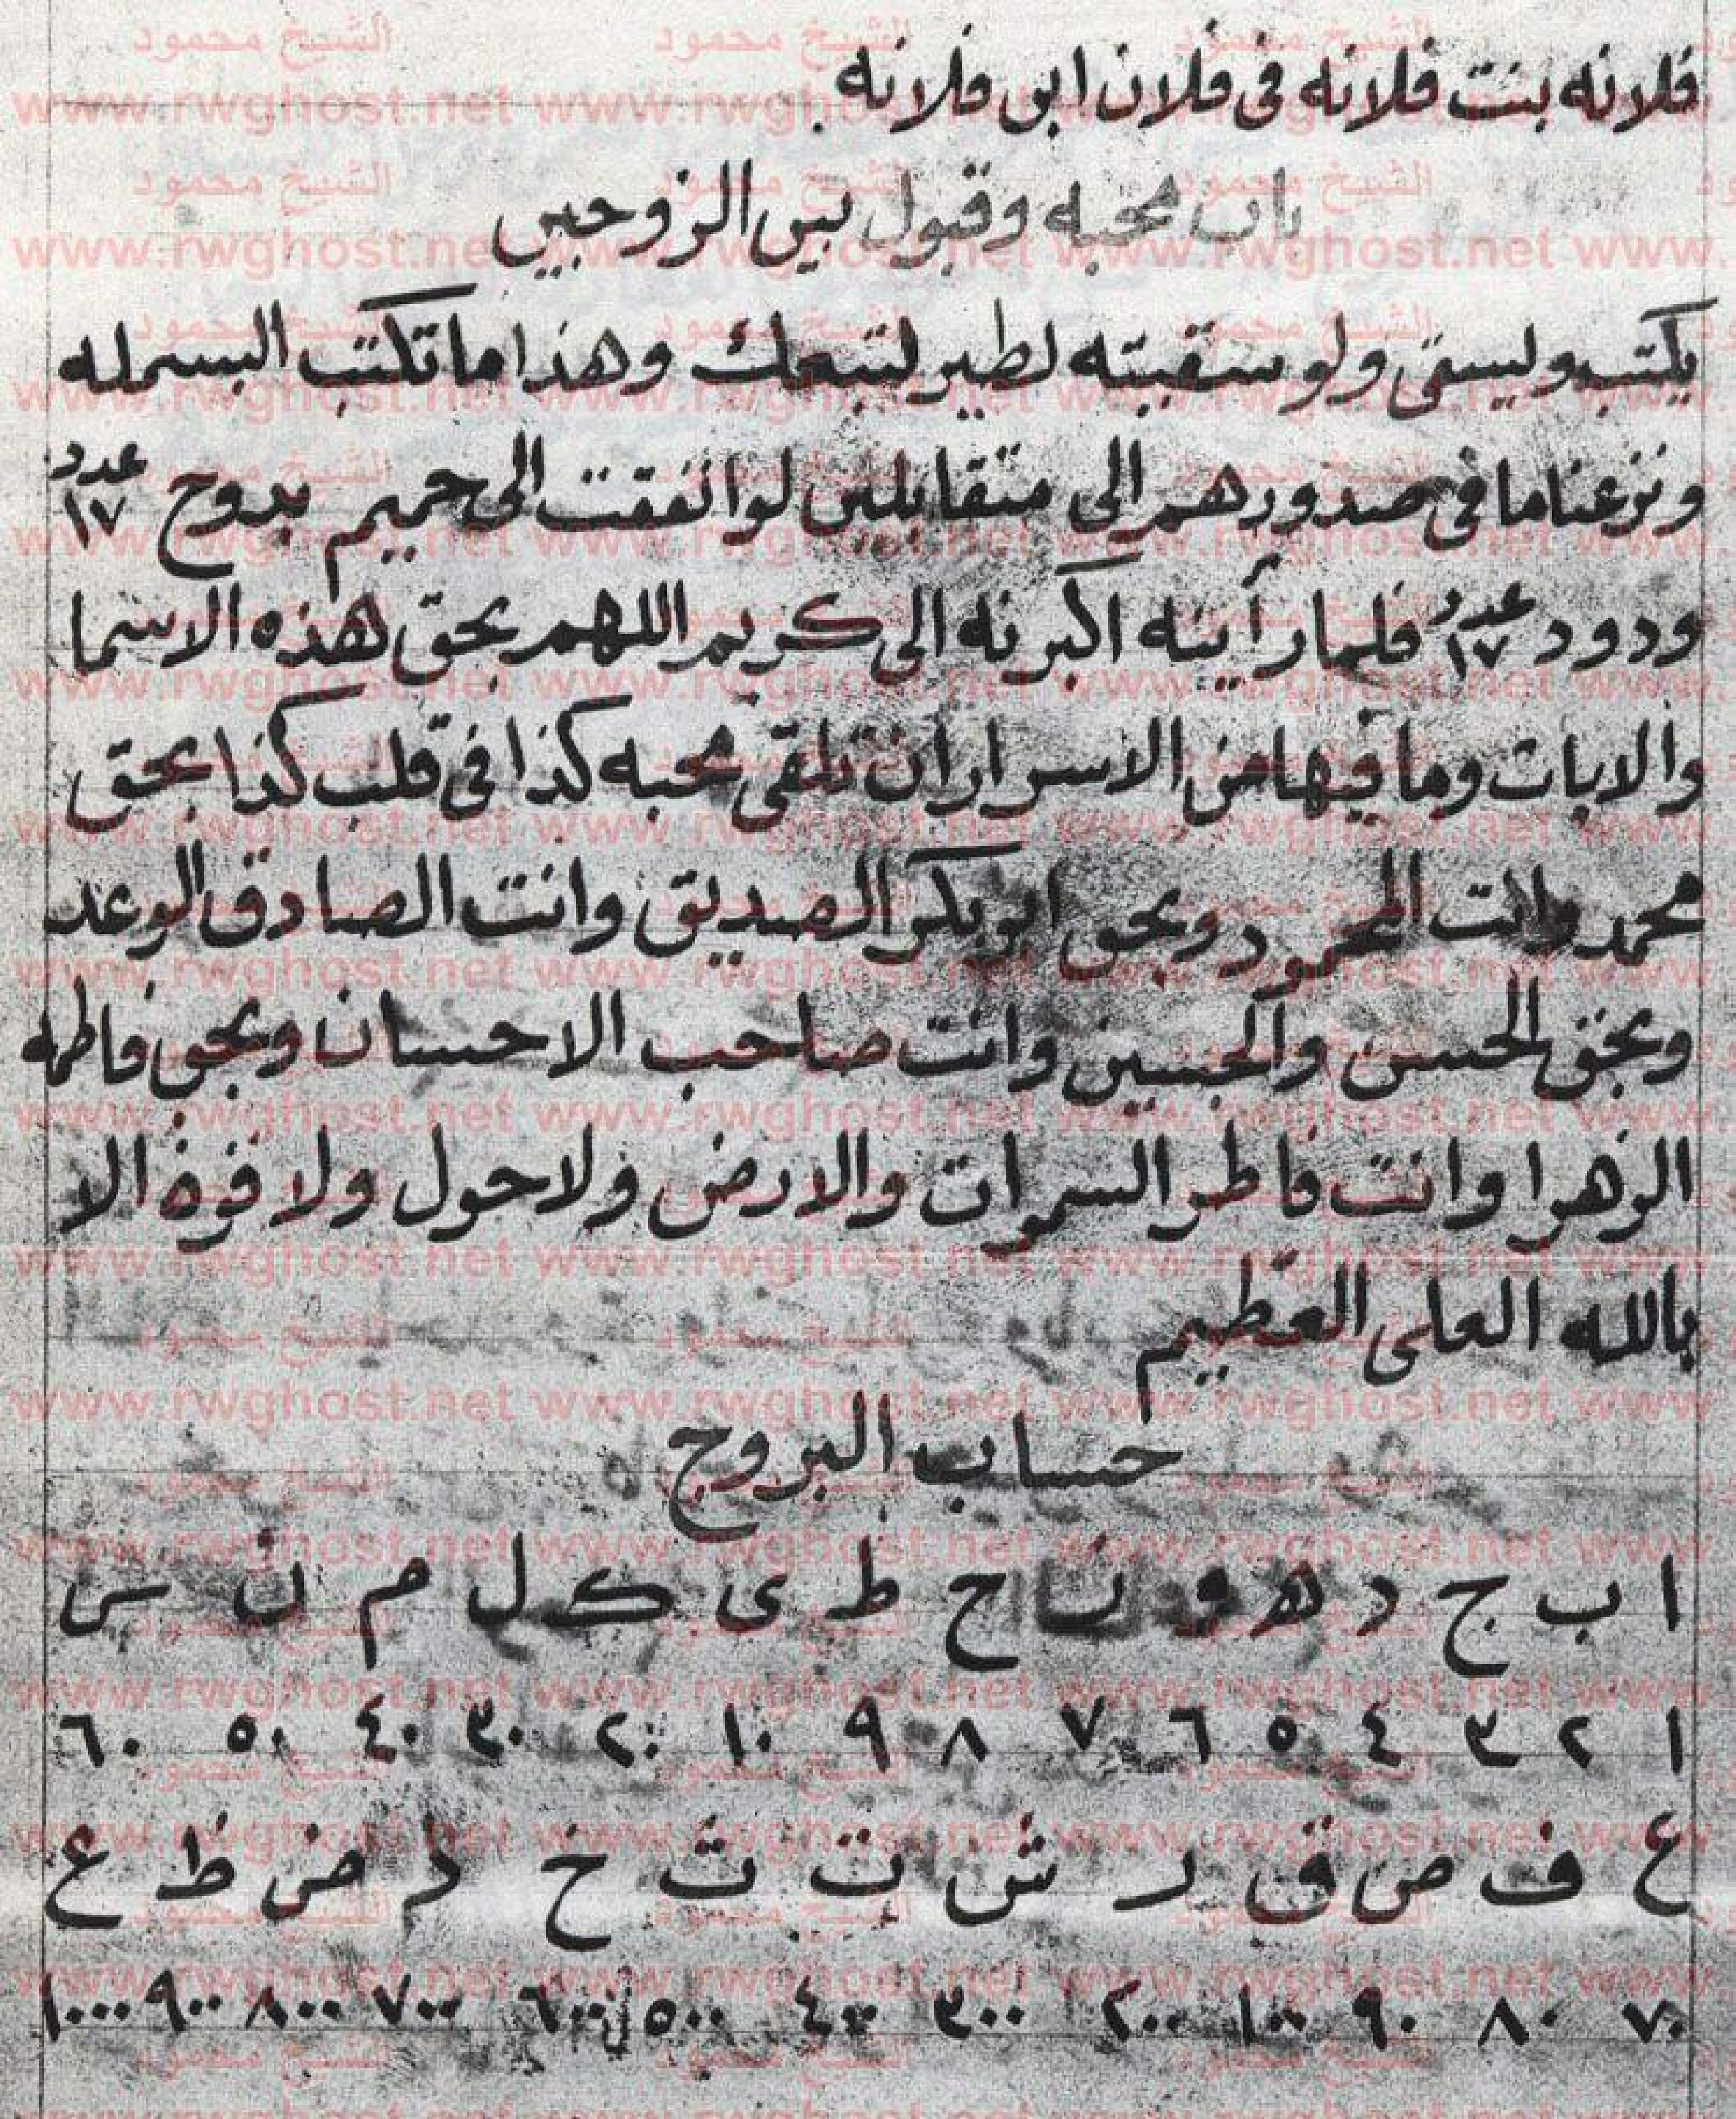 فلانه بنت فلانه فى فلان ابن فلانه
باب محبه وقبول بين الزوجين
يكتب وليسقى ولو سقيته لطير لتبعك وهذا ما تكتب البسمله
ونزعنا ما فى صدورهم الى متقابلين لو انفقت الى حميم بدوح عدد ١٧
ودود عدد ١٧ فلما رأينه اكبرنه الى كريم اللهم بحق هذه الاسما
والايات وما فيها من الاسرار ان تلقى محبه كذا فى قلب كذا بحق
محمد وانت المحمود وبحق ابو بكر الصديق وانت الصادق الوعد
وبحق الحسن والحسين وانت صاحب الاحسان وبحق فاطمه
الزهرا وانت فاطر السموات والارض ولا حول ولا قوة الا
بالله العلى العظيم
حساب البروج
ا ب ج د ه و ز ح ط ى ك ل م ن س
١ ٢ ٣ ٤ ٥ ٦ ٧ ٨ ٩ ١٠ ٢٠ ٣٠ ٤٠ ٥٠ ٦٠
ع ف ص ق ر ش ت ث خ ذ ض ظ غ
٧٠ ٨٠ ٩٠ ١٠٠ ٢٠٠ ٣٠٠ ٤٠٠ ٥٠٠ ٦٠٠ ٧٠٠ ٨٠٠ ٩٠٠ ١٠٠٠
الشيخ محمود
www.rwghost.net